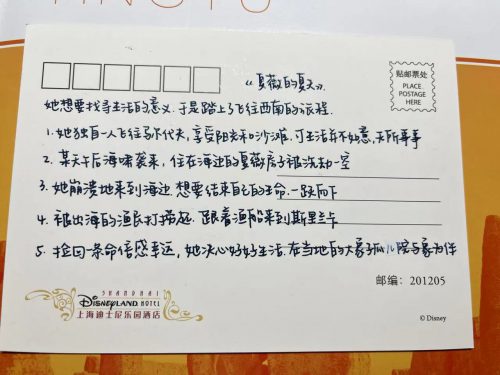 《夏薇的夏天》
贴邮票处
PLACE
POSTAGE
HERE
她想要找寻生活的意义.于是踏上了飞往西南的旅程.
1.她独自一人飞往马尔代夫,享受阳光和沙滩.可生活并不如意,无所事事
2.某天午后海啸袭来,住在海边的夏薇房子被洗劫一空
3.她崩溃地来到海边 想要结束自己的生命.一跃向下
4.被出海的渔民打捞起.跟着渔船来到斯里兰卡
5.捡回一条命倍感幸运,她决心好好生活.在当地的大象孤儿院与象为伴
邮编:201205
SHANGHAI
DISNEYLAND HOTEL
上海迪士尼乐园酒店
© Disney